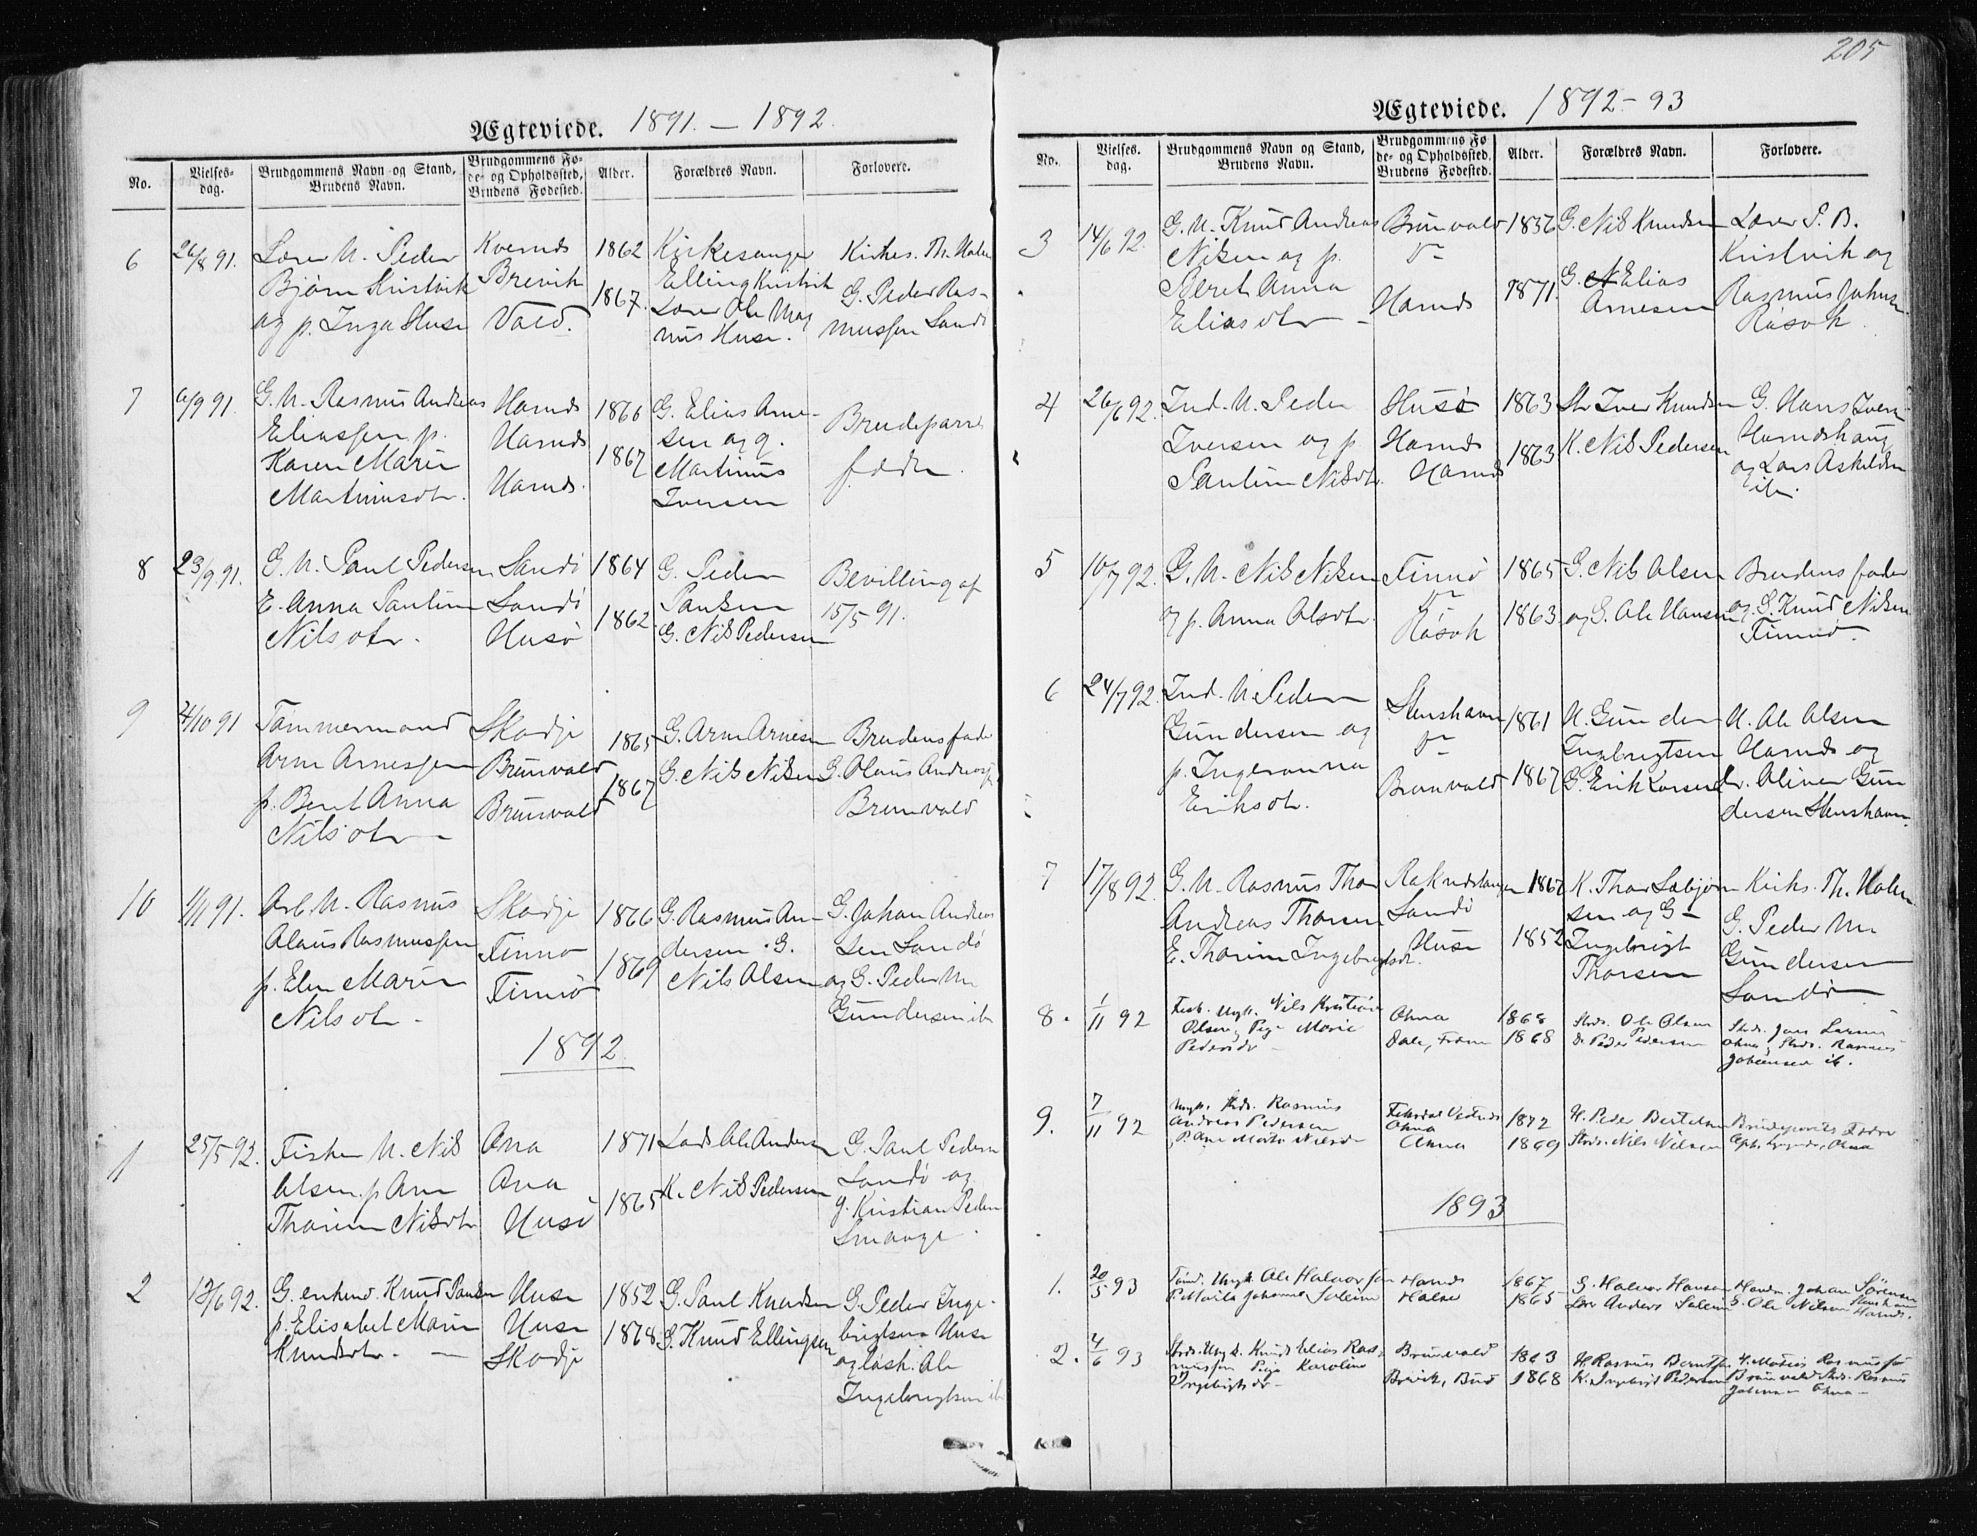 205
Ægteviede. 1891. — 1892.
No.
Vielses-
dag.
Brudgommens Navn og Stand,
Brudens Navn.
Brudgommens Fø-
de- og Opholdssted,
Brudens Fødested.
Alder.
Forældres Navn.
Forlovere.
6
26/8 91.
Lærer U. Peder
Bjørn Kristvik
og p. Inga Huse
Kvernds
Brevik
Vold.
1862
1867.
Kirkesanger
Elling Kristvik
Lærer Ole Mag
nus Huse.
Kirkes. Th. Holm
G. Peder Ras-
mussen Sandø
7
6/9 91.
G. U. Rasmus Andreas
Eliassen p.
Karen Marie
Martinusdtr.
Harnds
Harnds
Harnds.
1866
1867
G. Elias Arne-
sen og g.
Martinus
Iversen
Brudeparrets
fædre.
8
23/9 91.
G. U. Paul Pedersen
E. Anna Pauline
Nilsdtr.
Sandø
Sandø
Husø
1864
1862.
G. Peder
Paulsen
G. Nils Pedersen
Bevilling af
15/5 91.
9
4/10 91
Tømmermand
Arne Arnessen
p. Beret Anna
Nilsdtr —
Skodje
Brunvold
Brunvold
1865
1867
G. Arne Arnesen
G. Nils Nilsen
Brudens fader
G. Olaus Andreass.
Brunvold
10
1/11 91.
Arb. U. Rasmus
Olaus Rasmussen
p. Elen Marie
Nilsdtr.
Skodje
Finnø
Finnø
1866
1869
G. Rasmus An-
dersen. G.
Nils Olsen
G. Johan Andrea
sen Sandø
og G. Peder M.
Gundersen ib.
1892
1
25/5 92.
Fisker U. Nils
Olsen. p. Ane
Thorine Nilsdtr
Ona
Ona
Husø
1871
1865
Lods Ole Andersen
K. Nils Pedersen
G. Paul Pedersen
Sandø og
g. Kristian Peder
Smauge
2
12/6 92.
G. enkem. Knud Paulsen
p. Elisabet Marie
Knudsdtr. —
Huse
Huse
Skodje
1852
1868.
G. Paul Knudsen
G. Knud Ellingsen
G. Peder Inge-
brigtsen Huse
og løsk. Ole
Ingebrigtsen ib
Ægteviede. 1892-93
No.
Vielses.
dag.
Brudgommens Navn og Stand,
Brudens Navn.
Brudgommens Fø
de- og Opholdssted,
Brudens Fødested.
Alder.
Forældres Navn.
Forlovere.
3
14/6 92.
G. U. Knud Andreas
Nilsen og p.
Beret Anna
Eliasdtr —
Brunvold
Harnds
1871.
G. Nils Knudsen
G. Elias
Arnesen
Lærer P. B.
Kristvik og
Rasmus Johns.
Røsok.
4
26/6 92.
Ind. U. Peder
Iversen og p
Pauline Nilsdtr.
Husø
Harnds
Harnds
1863
1863
Str Iver Knudsen
K. Nils Pedersen
G. Hans Ivers.
Harndshaug
og Lars Askildsen
ib.
5
10/7 92.
G. U. Nils Nilsen
og p. Anna Olsdtr.
Finnø
Røsok
1865
1863
G. Nils Olsen
og G. Ole Hansen
Brudens fader
og G. Knud Nilsen
Finnø.
6
24/7 92.
Ind. U. Peder
Gundersen og
p. Ingeranna
Eriksdtr.
Stenshavn
Brunvold
1861
1867
U. Gunder
Ingebrigtsen
G. Erik Larsen
U. Ole Olsen
Harnds og
Oliver Gun
dersen Stenshavn.
7
17/8 92.
G. U. Rasmus Thor
Andreas Thorsen
E. Thorine Ingebrigtsdtr.
Sandø
Huse
1852
K. Thor Sæbjørn
sen og G —
Ingebrigt
Thorsen
Kirks. Th. Holm
G. Peder M.
Gundersen
Sandø
8.
1/11 92
Fisk. Ungk. Nils Kristian
Olsen, Pige Marie
Pedersdr —
Ohna
Dale, Fræn
1868
1868
Strds. Ole Olsen
Do Peder Pedersen
Strds. Jens Larsen
Ohna, Strds. Rasmus
Johansen ib.
9.
7/11 92
Ungk. Strds. Rasmus
Andreas Pedersen
Ohna
Ohna
1872
1869
H. Peder Bertelsen
Strds. Nils Nilsen
1893
1.
20/5 93
Ungk. Ole Halvorsen
Harnds
Halse
1867
1865
G. Halvor Hansen
Lær Anders Soleim
Handm. Johan Sørensen
G. Ole Nilsen Harnds.
2.
4/6 93
Strds. Ungk. Knud Elias Ras-
mussen Pige Karoline
Ingebrigtsdr —
Brunvold
Brevik, Bud
1863
1868
H. Rasmus Berntsen
K. Ingebrigt Pedersen
H. Matias Rasmussen
Brunvold Strds. Rasmus
Johnsen Ohna —